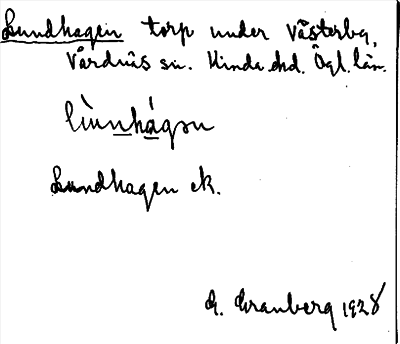 Lundhagen torp under Västerby,
Vårdnäs sn. Kinda hd. Ögl. län.
lùnnhágən
Lundhagen ek.
G. Granberg 1928